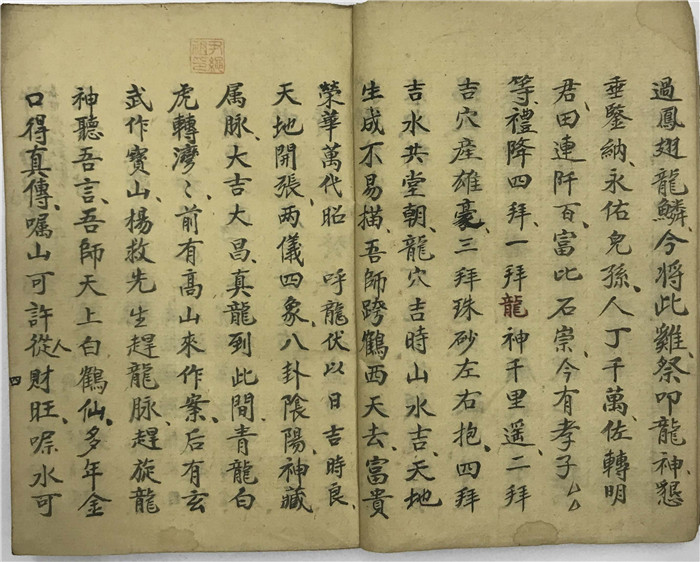 過鳳翅龍鱗、今將此雞祭叩龍神、懇
垂鑒納、永佑兒孫、人丁千萬、佐轉明
君、田連阡百、富比石崇、今有孝子厶厶
等、禮降四拜、一拜龍神千里遥、二拜
吉穴産雄豪、三拜珠砂左右抱、四拜
吉水共堂朝、龍穴吉時山水吉、天地
生成不易描、吾師跨鶴西天去、富貴
榮華萬代昭 呼龍伏以日吉時良、
天地開張、两儀四象、八卦陰陽、神藏
属脉、大吉大昌、真龍到此間、青龍白
虎轉灣〻、前有高山來作案、后有玄
武作寶山、楊救先生趕龍脉、趕旋龍
神聽吾言、吾師天上白鶴仙、多年金
口得真傳、嘱山可許從人財旺、嘱水可
四